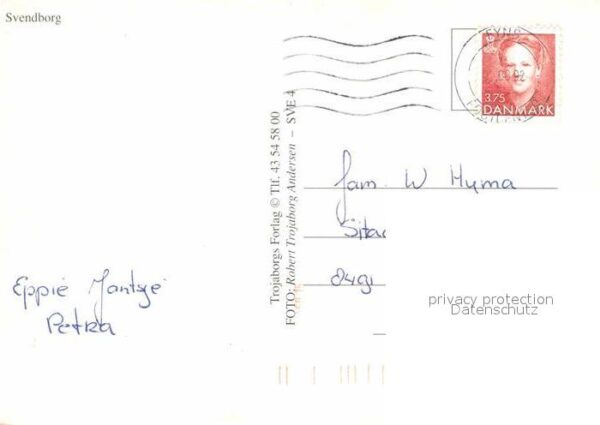 Svendborg
FYNS
3.75
DANMARK
Trojaborgs Forlag © Tlf. 43 54 58 00
FOTO: Robert Trojaborg Andersen – SVE 4
fam. W Hyma
Eppie Jantsje
Petra
privacy protection
Datenschutz